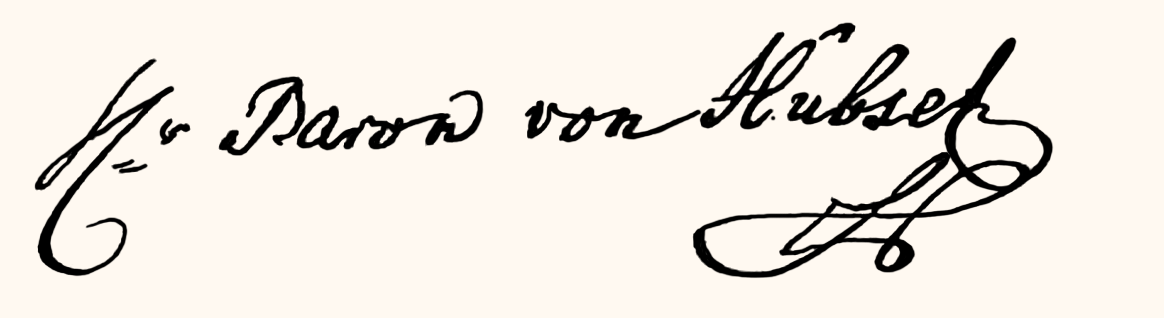 Hr Baron von Hübsch